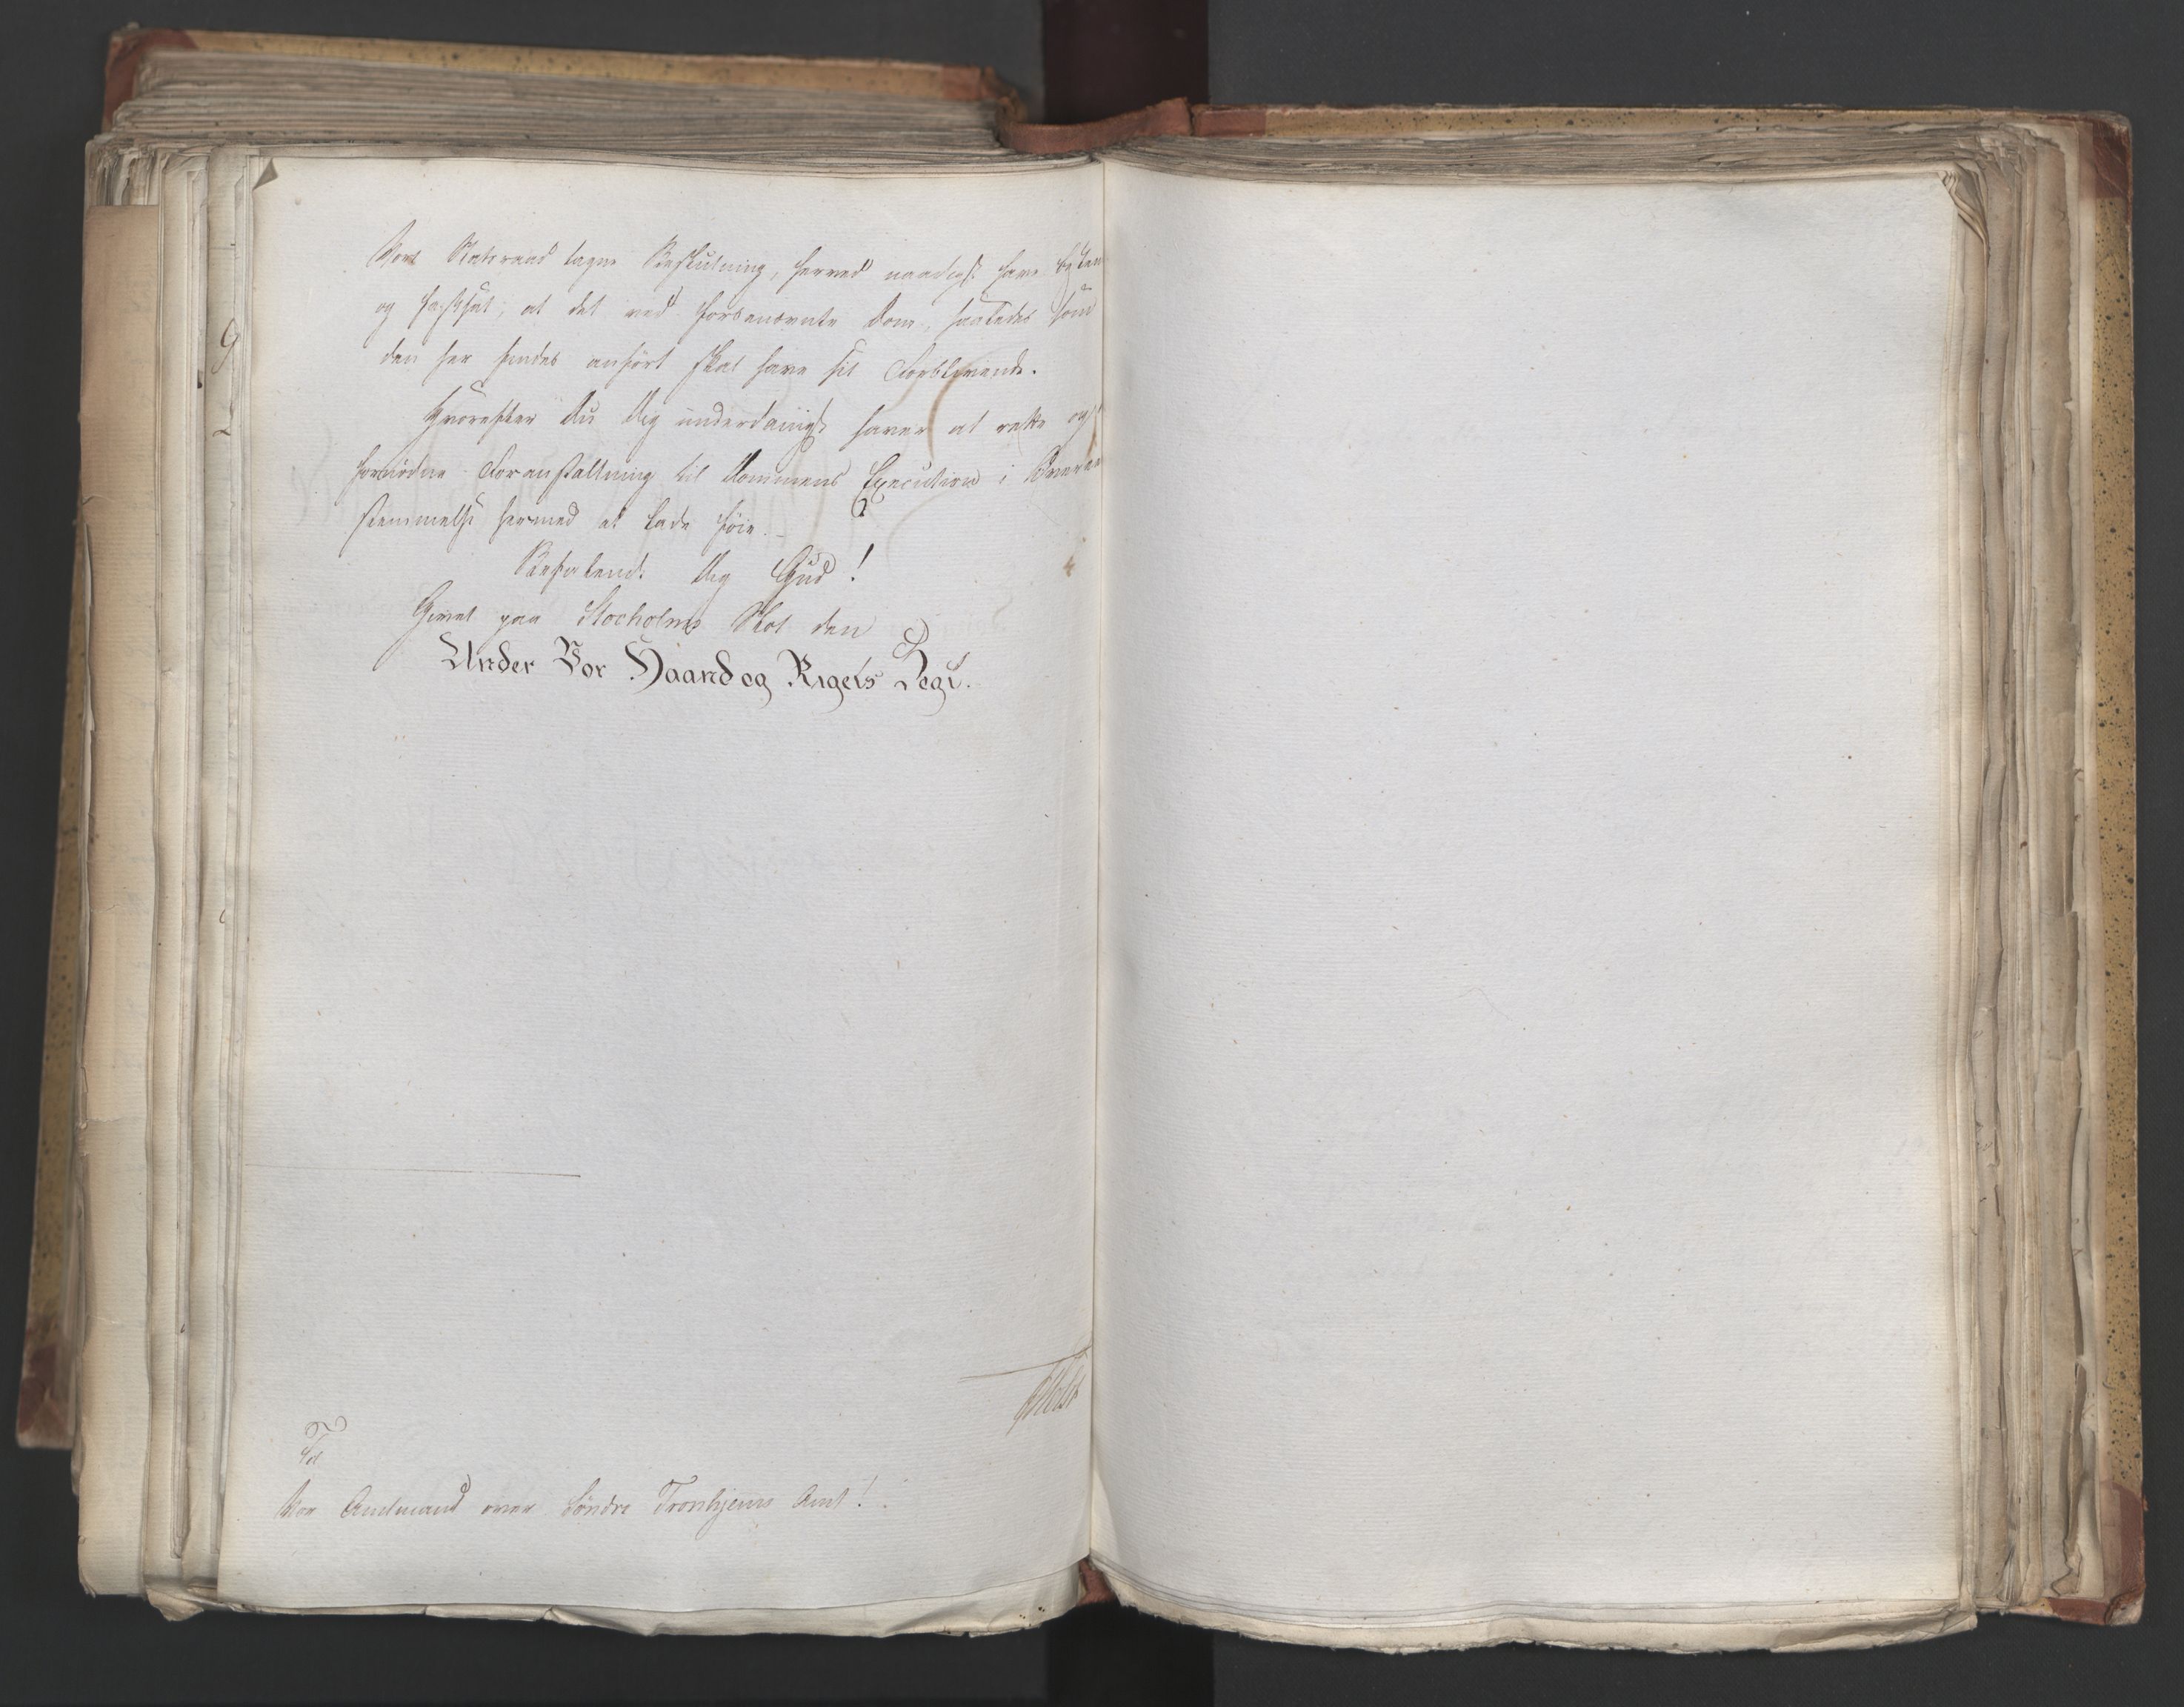 Vort Statsraad tagne Beslutning, herved naadigst have
og fastsat, at det ved forbenævnte Dom, saaledes som
den her findes anført skal have sit Forblivende.
Hvorefter Du Dig underdanigst haver at rette og
fornødne Foranstaltning til Dommens Execution i Overeens
stemmelse hermed at lade føie.
Befalende Dig Gud!
Givet paa Stocholms Slot den
Under Vor Haand og Rigets Segl.
Holst
Til
Vor Amtmand over Søndre Tronhjems Amt!